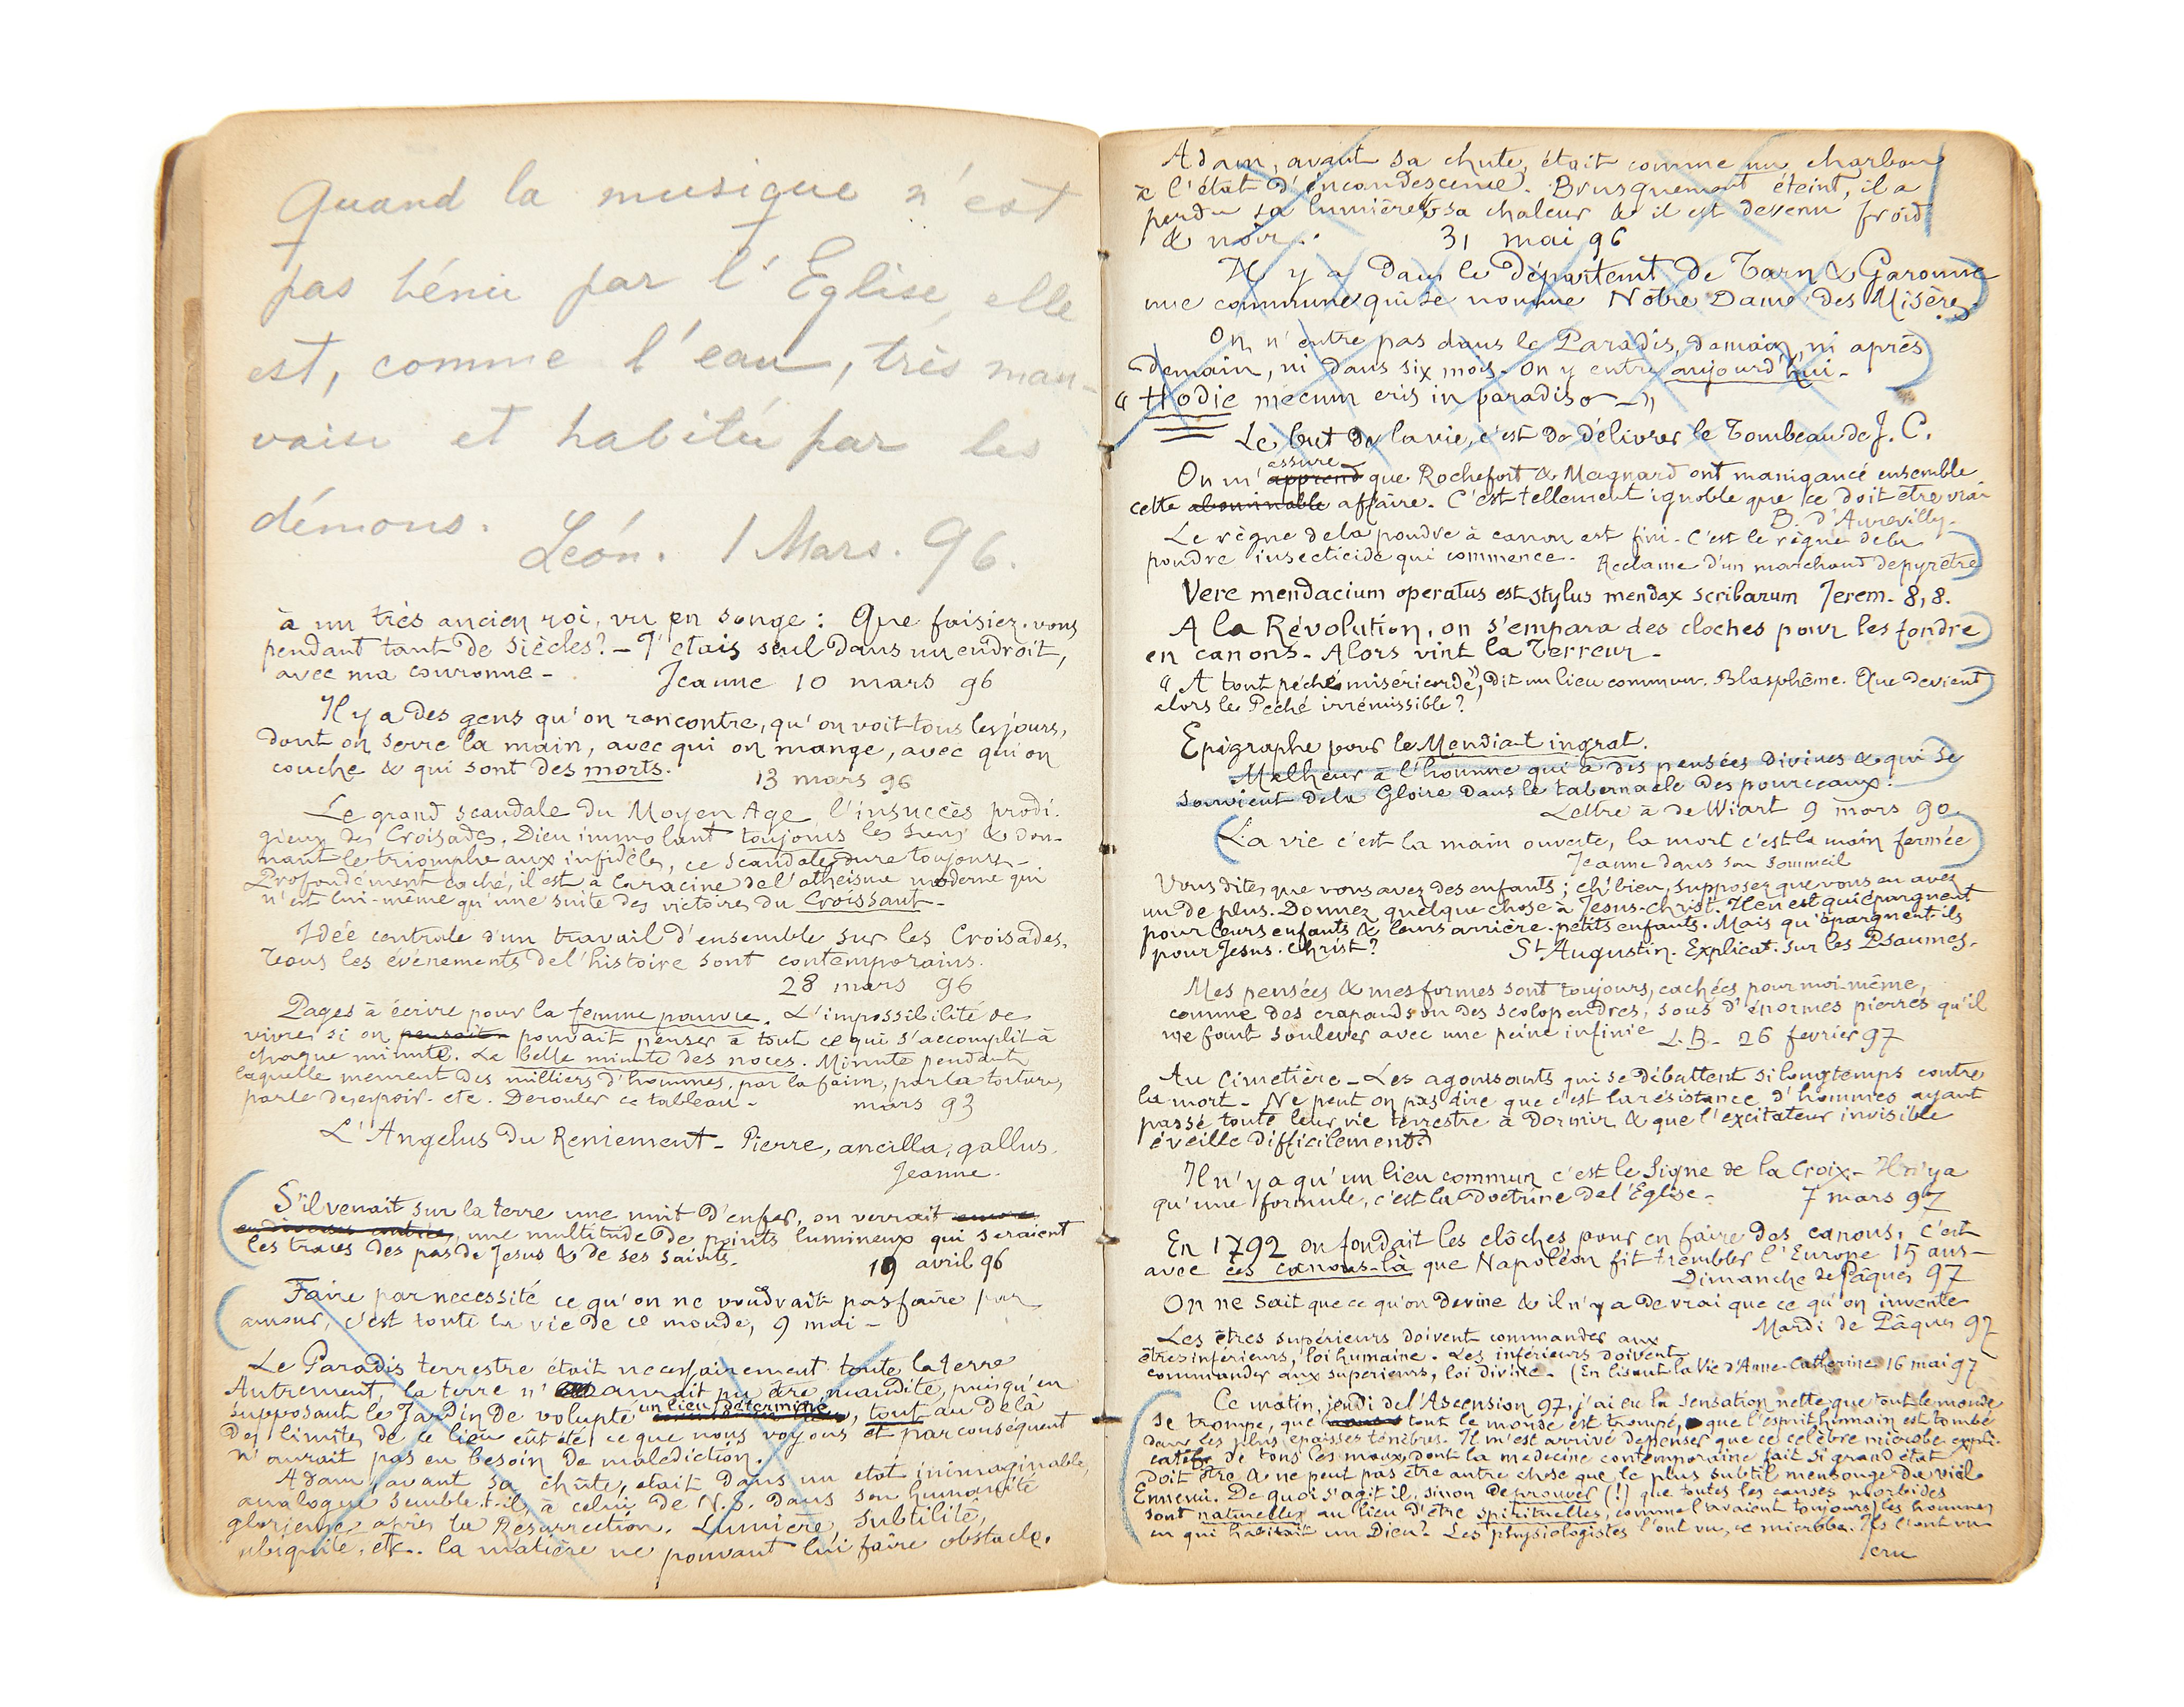 Quand la musique n'est
pas bénie par l'Eglise, elle
est, comme l'eau, très mau-
vaise et habitée par les
démons.
Léon. 1 Mars. 96.
à un très ancien roi, vu en songe : Que faisiez-vous
pendant tant de siècles? - J'étais seul dans un endroit,
avec ma couronne -
Jeanne 10 mars 96
Il y a des gens qu'on rencontre, qu'on voit tous les jours,
dont on serre la main, avec qui on mange, avec qui on
couche & qui sont des morts.
13 mars 96
Le grand scandale du Moyen Age, l'insuccès prodi-
gieux des Croisades. Dieu immolant toujours les siens & don-
nant le triomphe aux infidèles, ce scandale dure toujours -
Profondément caché, il est à la racine de l'athéisme moderne qui
n'est lui-même qu'une suite des victoires du Croissant -
Idée centrale d'un travail d'ensemble sur les Croisades.
Tous les événements de l'histoire sont contemporains.
28 mars 96
Pages à écrire pour la femme pauvre. L'impossibilité de
vivre si on pensait pouvait penser à tout ce qui s'accomplit à
chaque minute. La belle minute des noces. Minute pendant
laquelle meurent des milliers d'hommes, par la faim, par la torture,
par le désespoir. etc. Dérouler ce tableau -
mars 93
L'Angelus du Reniement - Pierre, ancilla, gallus.
Jeanne.
S'il venait sur la terre une nuit d'enfer, on verrait
une multitude de points lumineux qui seraient
les traces des pas de Jesus & de ses saints.
19 avril 96
Faire par necessité ce qu'on ne voudrait pas faire par
amour, c'est toute la vie de ce monde, 9 mai -
Le Paradis terrestre était necessairement toute la terre
Autrement, la terre n'aurait pu être maudite, puisqu'en
supposant le Jardin de volupté un lieu déterminé, tout au delà
des limites de ce lieu eût été ce que nous voyons et par conséquent
n'aurait pas eu besoin de malediction.
Adam, avant sa chûte, etait dans un etat inimaginable,
analogue semble-t-il, à celui de N.S. dans son humanité
glorieuse après la Résurrection. Lumière, subtilité,
ubiquité, etc. la matière ne pouvant lui faire obstacle.
Adam, avant sa chute, était comme un charbon
à l'état d'incandescence. Brusquement éteint, il a
perdu sa lumière & sa chaleur & il est devenu froid
& noir..
31 mai 96
Il y a dans le Département de Tarn & Garonne
une commune qui se nomme Notre Dame des Misères.
On n'entre pas dans le Paradis, demain, ni après
demain, ni dans six mois - On y entre aujourd'hui -
"Hodie mecum eris in paradiso -"
Le but de la vie, c'est de délivrer le Tombeau de J. C.
assure
On m'apprend que Rochefort & Magnard ont manigancé ensemble
cette abominable affaire. C'est tellement ignoble que ce doit être vrai
B. d'Aurevilly.
Le règne de la poudre à canon est fini. C'est le règne de la
poudre insecticide qui commence -
Reclame d'un marchand de pyrèthre
Vere mendacium operatus est stylus mendax scribarum Jerem. 8, 8.
A la Révolution, on s'empara des cloches pour les fondre
en canons - Alors vint la Terreur -
"A tout péché miséricorde", dit un lieu commun. Blasphême. Que devient
alors le Péché irrémissible?
Epigraphe pour le Mendiant ingrat.
Malheur à l'homme qui a des pensées divines & qui se
souvient de la Gloire dans le tabernacle des pourceaux!
Lettre à de Wiart 9 mars 90.
La vie c'est la main ouverte, la mort c'est la main fermée
Jeanne dans son sommeil
Vous dites que vous avez des enfants ; eh! bien, supposez que vous en avez
un de plus. Donnez quelque chose à Jesus-Christ. Il en est qui épargnent
pour leurs enfants & leurs arrière-petits enfants. Mais qu'épargnent-ils
pour Jesus-Christ?
St Augustin. Explicat. sur les Psaumes.
Mes pensées & mes formes sont toujours, cachées pour moi-même,
comme des crapauds ou des scolopendres, sous d'énormes pierres qu'il
me faut soulever avec une peine infinie
L.B. 26 fevrier 97
Au Cimetière - Les agonisants qui se débattent si longtemps contre
la mort - Ne peut on pas dire que c'est la résistance d'hommes ayant
passé toute leur vie terrestre à dormir & que l'excitateur invisible
éveille difficilement?
Il n'y a qu'un lieu commun c'est le Signe de la Croix - Il n'y a
qu'une formule, c'est la Doctrine de l'Eglise -
7 mars 97
En 1792 on fondait les clôches pour en faire des canons, C'est
avec ces canons-là que Napoléon fit trembler l'Europe 15 ans -
Dimanche de Pâques 97
On ne sait que ce qu'on devine & il n'y a de vrai que ce qu'on invente
Mardi de Pâques 97
Les êtres supérieurs doivent commander aux
êtres inférieurs, loi humaine. Les inférieurs doivent
commander aux superieurs, loi divine. (En lisant la Vie d'Anne-Catherine 16 mai 97
Ce matin, jeudi de l'Ascension 97, j'ai eu la sensation nette que tout le monde
se trompe, que tout le monde est trompé, que l'esprit humain est tombé
dans les plus épaisses ténèbres. Il m'est arrivé de penser que ce célèbre microbe expli-
catif de tous les maux dont la médecine contemporaine fait si grand état
doit être & ne peut pas être autre chose que le plus subtil mensonge du vieil
Ennemi. De quoi s'agit il, sinon de prouver (!) que toutes les causes morbides
sont naturelles au lieu d'être spirituelles, comme l'avaient toujours les hommes
en qui habitait un Dieu? Les physiologistes l'ont vu, ce microbe. Ils l'ont vu
cru